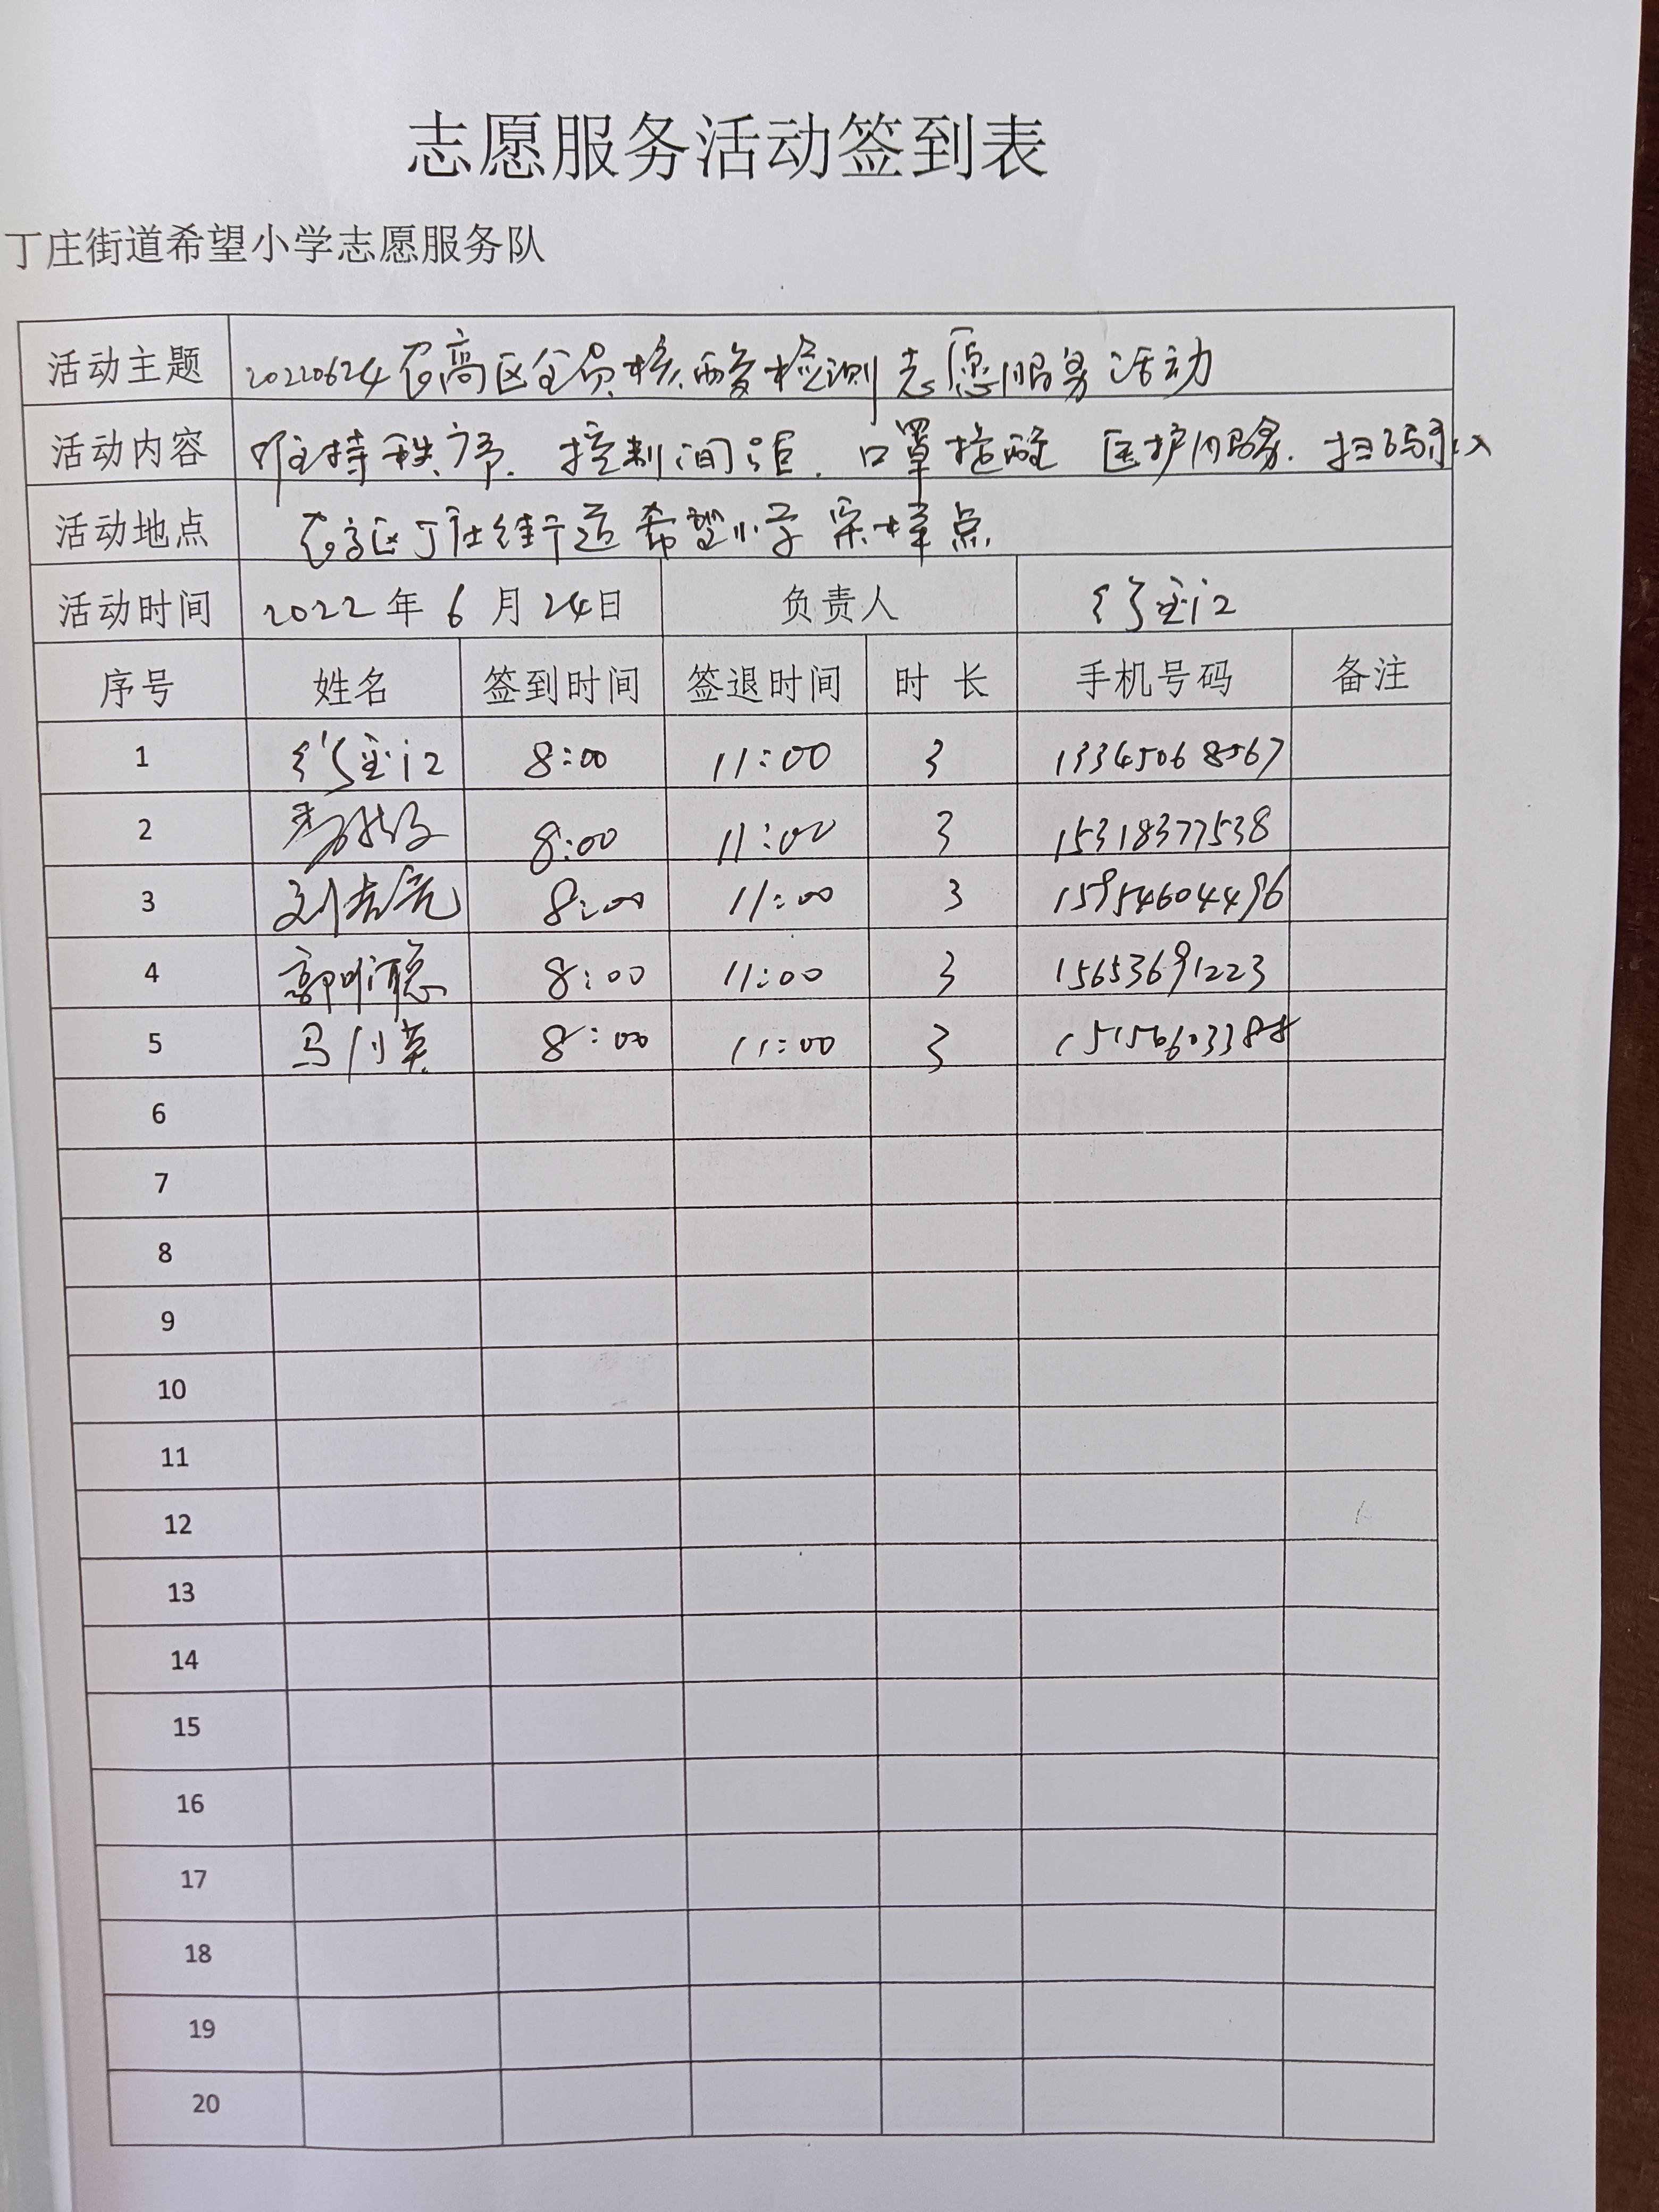 志愿服务活动签到表
丁庄街道希望小学志愿服务队
活动主题 20220624农高区全员核酸检测志愿服务活动
活动内容 维持秩序. 控制间距. 口罩提醒 医护服务. 扫码录入
活动地点 农高区丁庄街道希望小学采样点
活动时间 2022年6月24日 负责人
序号 姓名 签到时间 签退时间 时 长 手机号码 备注
1 8:00 11:00 3 13345068567
2 8:00 11:00 3 15318377538
3 刘吉亮 8:00 11:00 3 15954604496
4 郭明聪 8:00 11:00 3 15653691223
5 马川英 8:00 11:00 3
6
7
8
9
10
11
12
13
14
15
16
17
18
19
20